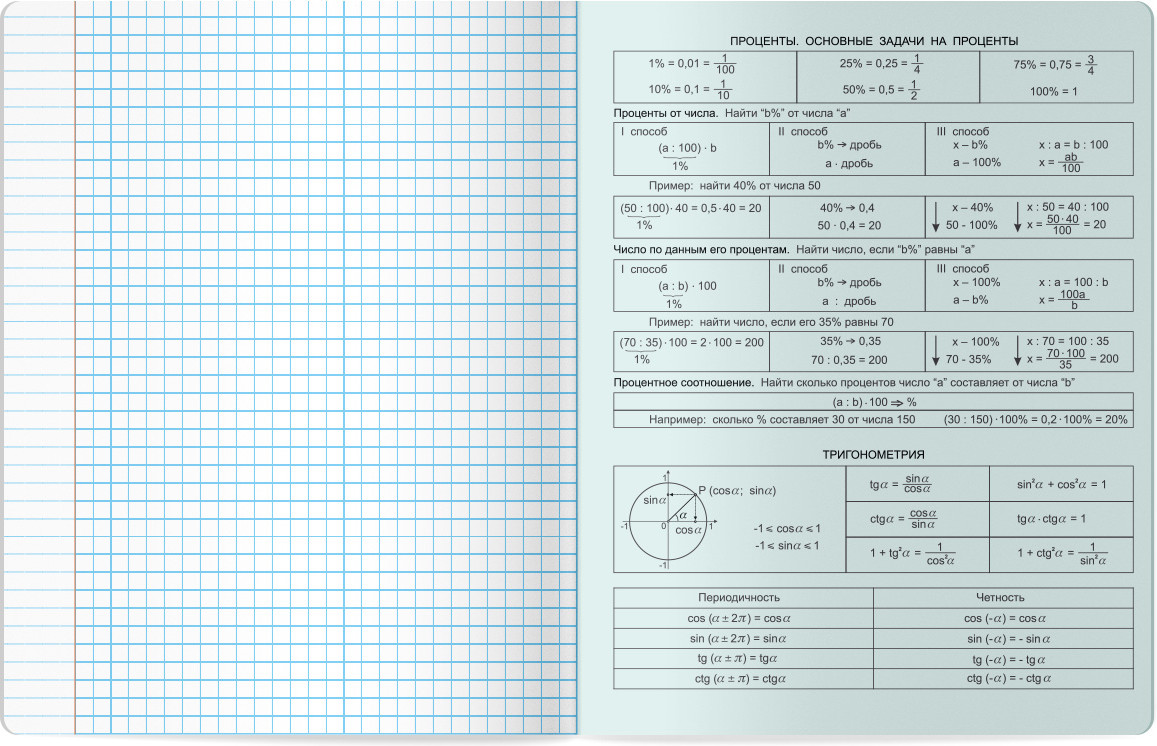 ПРОЦЕНТЫ. ОСНОВНЫЕ ЗАДАЧИ НА ПРОЦЕНТЫ
1% = 0,01 = 1/100 25% = 0,25 = 1/4 75% = 0,75 = 3/4
10% = 0,1 = 1/10 50% = 0,5 = 1/2 100% = 1
Проценты от числа. Найти “b%” от числа “a”
I способ II способ III способ
(a : 100) · b b% → дробь x – b% x : a = b : 100
1% a · дробь a – 100% x = ab/100
Пример: найти 40% от числа 50
(50 : 100) · 40 = 0,5 · 40 = 20 40% → 0,4 x – 40% x : 50 = 40 : 100
1% 50 · 0,4 = 20 50 - 100% x = 50 · 40/100 = 20
Число по данным его процентам. Найти число, если “b%” равны “a”
I способ II способ III способ
(a : b) · 100 b% → дробь x – 100% x : a = 100 : b
1% a : дробь a – b% x = 100a/b
Пример: найти число, если его 35% равны 70
(70 : 35) · 100 = 2 · 100 = 200 35% → 0,35 x – 100% x : 70 = 100 : 35
1% 70 : 0,35 = 200 70 - 35% x = 70 · 100/35 = 200
Процентное соотношение. Найти сколько процентов число “a” составляет от числа “b”
(a : b) · 100 ⇒ %
Например: сколько % составляет 30 от числа 150 (30 : 150) · 100% = 0,2 · 100% = 20%
ТРИГОНОМЕТРИЯ
1
sinα P (cosα; sinα)
α
-1 0 cosα 1
-1
-1 ⩽ cosα ⩽ 1
-1 ⩽ sinα ⩽ 1
tgα = sinα/cosα sin²α + cos²α = 1
ctgα = cosα/sinα tgα · ctgα = 1
1 + tg²α = 1/cos²α 1 + ctg²α = 1/sin²α
Периодичность Четность
cos (α ± 2π) = cosα cos (-α) = cosα
sin (α ± 2π) = sinα sin (-α) = - sinα
tg (α ± π) = tgα tg (-α) = - tgα
ctg (α ± π) = ctgα ctg (-α) = - ctgα